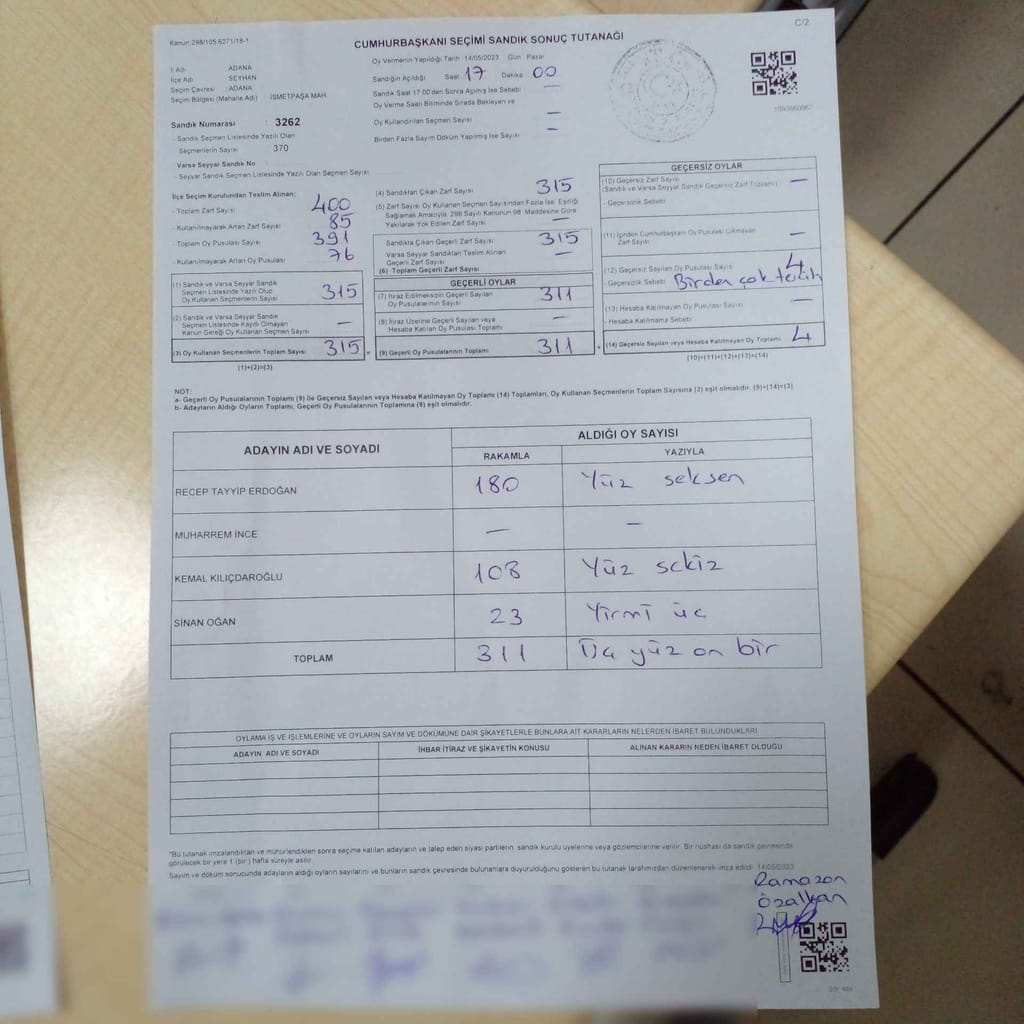 C/2
Kanun 298/105 6271/18-1
CUMHURBAŞKANI SEÇİMİ SANDIK SONUÇ TUTANAĞI
İl Adı : ADANA
İlçe Adı : SEYHAN
Seçim Çevresi : ADANA
Seçim Bölgesi (Mahalle Adı) İSMETPAŞA MAH.
Oy Vermenin Yapıldığı Tarih 14/05/2023 Gün Pazar
Sandığın Açıldığı Saat 17 Dakika 00
Sandık Saat 17:00'den Sonra Açılmış İse Sebebi —
Oy Verme Saati Bitiminde Sırada Bekleyen ve
Oy Kullandırılan Seçmen Sayısı —
Birden Fazla Sayım Döküm Yapılmış İse Sayısı —
Sandık Numarası : 3262
- Sandık Seçmen Listesinde Yazılı Olan
Seçmenlerin Sayısı : 370
Varsa Seyyar Sandık No
- Seyyar Sandık Seçmen Listesinde Yazılı Olan Seçmen Sayısı
İlçe Seçim Kurulundan Teslim Alınan;
- Toplam Zarf Sayısı 400
- Kullanılmayarak Artan Zarf Sayısı 85
- Toplam Oy Pusulası Sayısı 391
- Kullanılmayarak Artan Oy Pusulası 76
(1) Sandık ve Varsa Seyyar Sandık
Seçmen Listesinde Yazılı Olup
Oy Kullanan Seçmenlerin Sayısı 315
(2) Sandık ve Varsa Seyyar Sandık
Seçmen Listesinde Kayıtlı Olmayan
Kanun Gereği Oy Kullanan Seçmen Sayısı —
(3) Oy Kullanan Seçmenlerin Toplam Sayısı 315 =
(1)+(2)=(3)
(4) Sandıktan Çıkan Zarf Sayısı 315
(5) Zarf Sayısı Oy Kullanan Seçmen Sayısından Fazla İse, Eşitliği
Sağlamak Amacıyla, 298 Sayılı Kanunun 98. Maddesine Göre
Yakılarak Yok Edilen Zarf Sayısı —
Sandıkta Çıkan Geçerli Zarf Sayısı 315
Varsa Seyyar Sandıktan Teslim Alınan
Geçerli Zarf Sayısı —
(6) Toplam Geçerli Zarf Sayısı
GEÇERLİ OYLAR
(7) İtiraz Edilmeksizin Geçerli Sayılan
Oy Pusulalarının Sayısı 311
(8) İtiraz Üzerine Geçerli Sayılan veya
Hesaba Katılan Oy Pusulası Toplamı —
(9) Geçerli Oy Pusulalarının Toplamı 311 +
GEÇERSİZ OYLAR
(10) Geçersiz Zarf Sayısı —
(Sandık ve Varsa Seyyar Sandık Geçersiz Zarf Toplamı)
- Geçersizlik Sebebi
(11) İçinden Cumhurbaşkanı Oy Pusulası Çıkmayan
Zarf Sayısı —
(12) Geçersiz Sayılan Oy Pusulası Sayısı 4
- Geçersizlik Sebebi : Birden çok tercih
(13) Hesaba Katılmayan Oy Pusulası Sayısı —
- Hesaba Katılmama Sebebi
(14) Geçersiz Sayılan veya Hesaba Katılmayan Oy Toplamı 4
(10)+(11)+(12)+(13)=(14)
NOT:
a- Geçerli Oy Pusulalarının Toplamı (9) ile Geçersiz Sayılan veya Hesaba Katılmayan Oy Toplamı (14) Toplamları, Oy Kullanan Seçmenlerin Toplam Sayısına (3) eşit olmalıdır. (9)+(14)=(3)
b- Adayların Aldığı Oyların Toplamı, Geçerli Oy Pusulalarının Toplamına (9) eşit olmalıdır.
ADAYIN ADI VE SOYADI ALDIĞI OY SAYISI
RAKAMLA YAZIYLA
RECEP TAYYİP ERDOĞAN 180 Yüz seksen
MUHARREM İNCE — —
KEMAL KILIÇDAROĞLU 108 Yüz sekiz
SİNAN OĞAN 23 Yirmi üç
TOPLAM 311 Üç yüz on bir
OYLAMA İŞ VE İŞLEMLERİNE VE OYLARIN SAYIM VE DÖKÜMÜNE DAİR ŞİKAYETLERLE BUNLARA AİT KARARLARIN NELERDEN İBARET BULUNDUKLARI
ADAYIN ADI VE SOYADI İHBAR İTİRAZ VE ŞİKAYETİN KONUSU ALINAN KARARIN NEDEN İBARET OLDUĞU
*Bu tutanak imzalandıktan ve mühürlendikten sonra seçime katılan adayların ve talep eden siyasi partilerin sandık kurulu üyelerine veya gözlemcilerine verilir. Bir nüshası da sandık çevresinde
görülecek bir yere 1 (bir) hafta süreyle asılır.
Sayım ve döküm sonucunda adayların aldığı oyların sayılarını ve bunların sandık çevresinde bulunanlara duyurulduğunu gösteren bu tutanak tarafımızdan düzenlenerek imza edildi. 14/05/2023
Ramazan
Özalkan